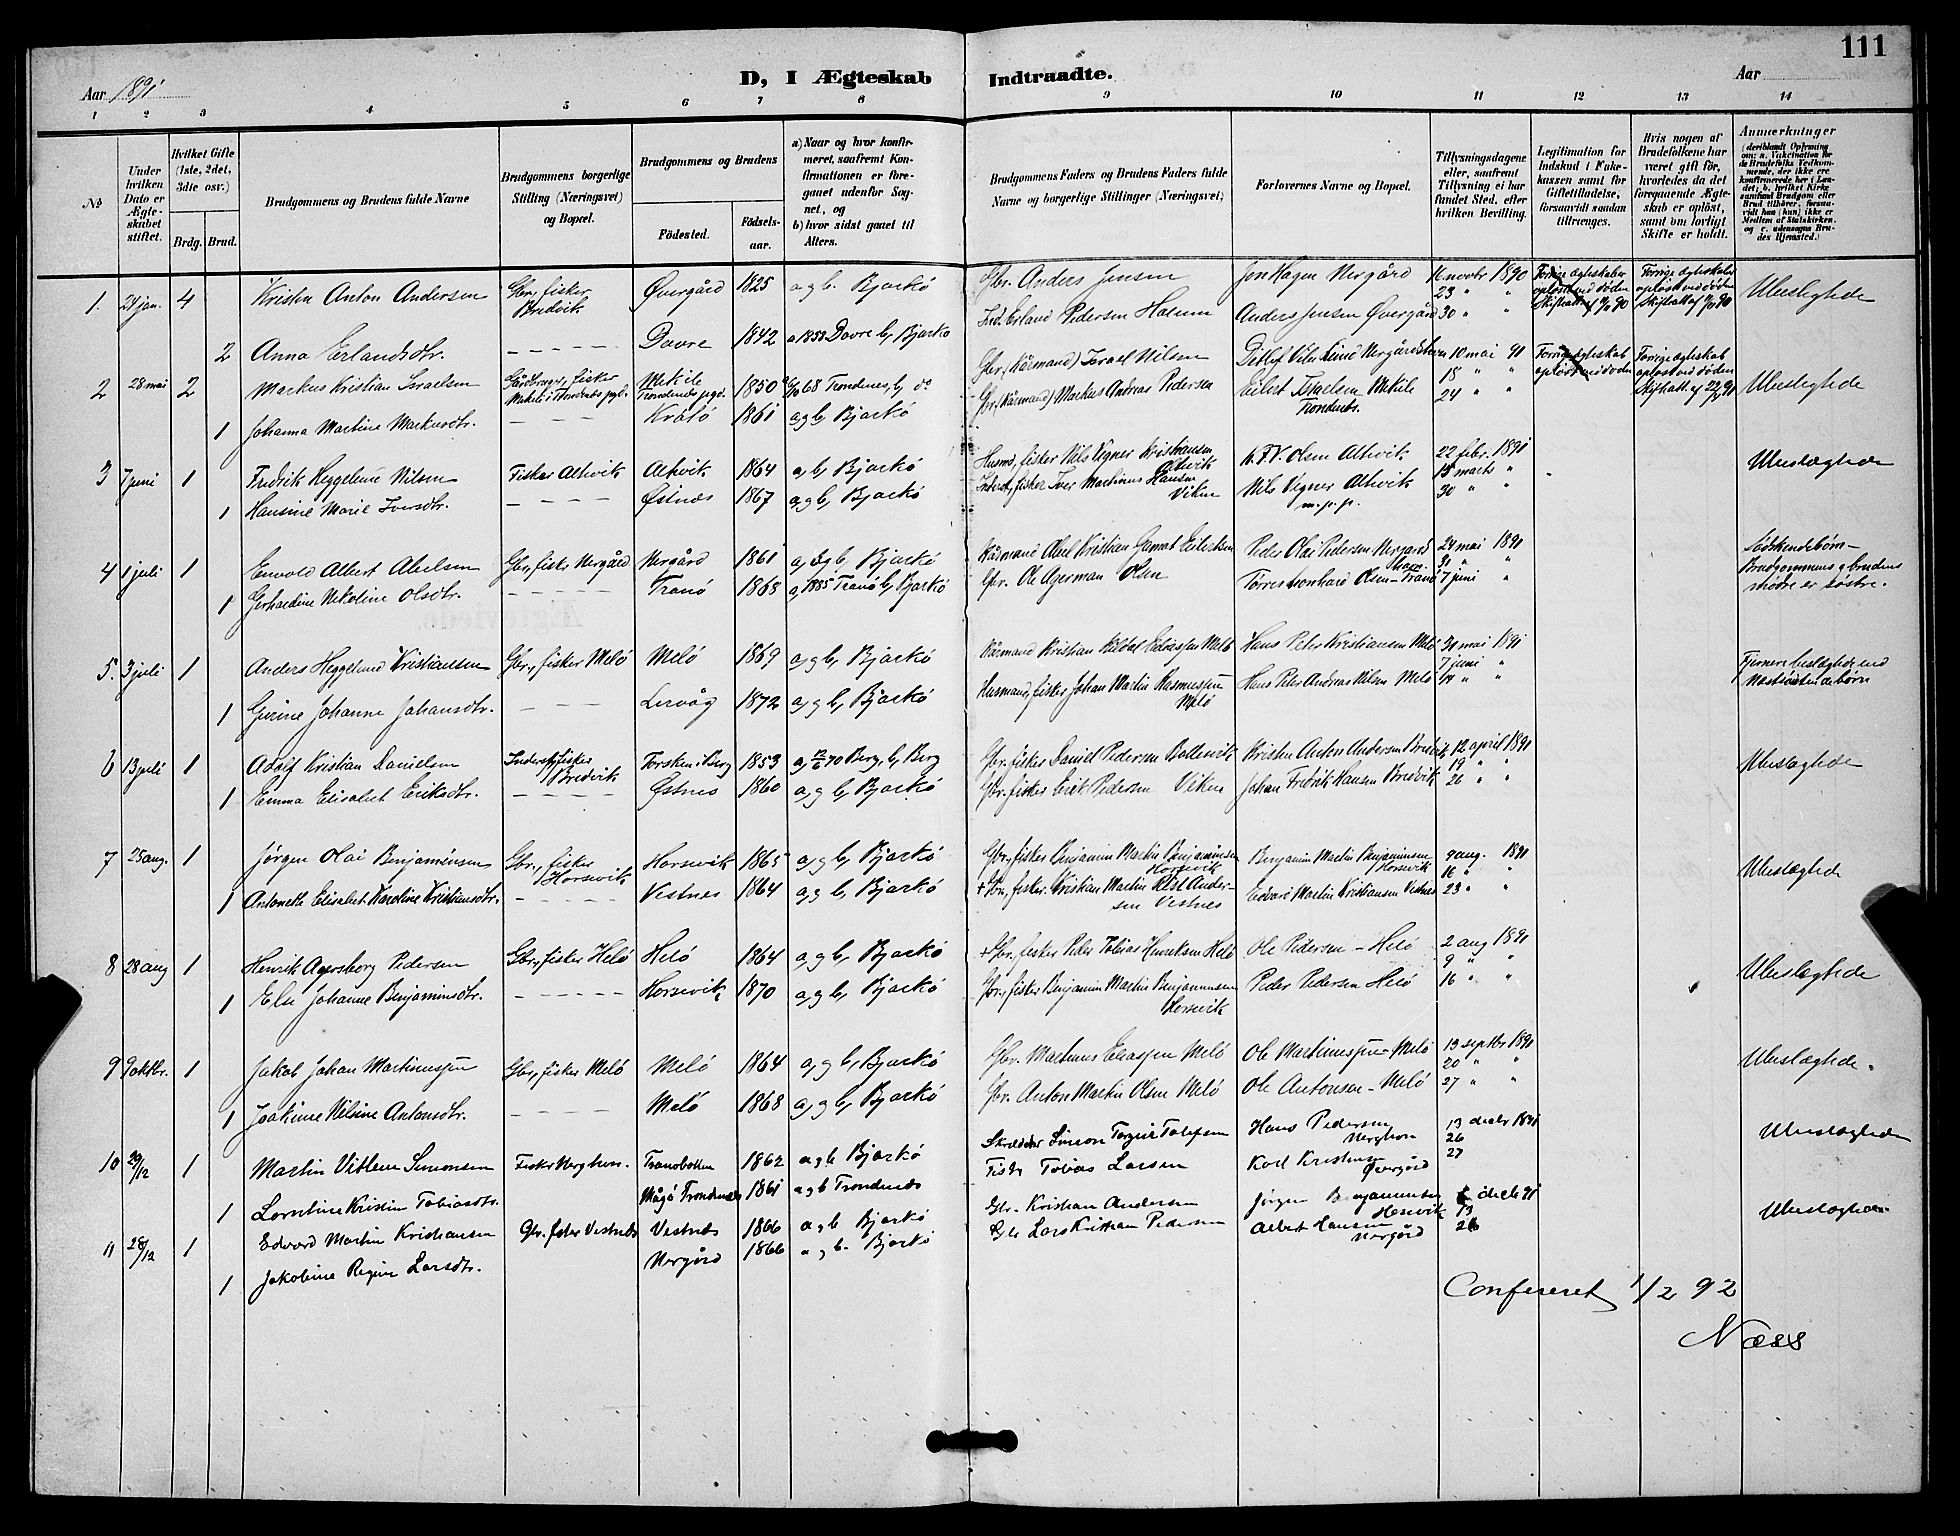 111
Aar 1891
D, I Ægteskab Indtraadte.
Aar
1 2 3 4 5 6 7 8 9 10 11 12 13 14
No
Under hvilken Dato er Ægteskabet stiftet.
Hvilket Gifte (1ste, 2det, 3die osv.)
Brdg. Brud.
Brudgommens og Brudens fulde Navne
Brudgommens borgerlige Stilling (Næringsvei) og Bopæl.
Brudgommens og Brudens
Fødested.
Fødselsaar.
a) Naar og hvor konfirmeret, saafremt Konfirmationen er foregaaet udenfor Sognet, og
b) hvor sidst gaaet til Alters.
Brudgommens Faders og Brudens Faders fulde Navne og borgerlige Stillinger (Næringsvei)
Forlovernes Navne og Bopæl.
Tillysningsdagene eller, saafremt Tillysning ei har fundet Sted, efter hvilken Bevilling.
Legitimation for Indskud i Enkekassen samt for Giftetilladelse, forsaavidt saadan tiltrænges.
Hvis nogen af Brudefolkene har været gift før, hvorledes da det foregaaende Ægteskab er opløst, samt om lovligt Skifte er holdt.
Anmerkninger
(deriblandt Oplysning om: a. Vakcination for de Brudefolks Vedkommende, der ikke ere konfirmerede her i Landet; b. hvilket Kirkesamfund Brudgom eller Brud tilhører, forsaavidt han (hun) ikke er Medlem af Statskirken, og c. udensogns Brudes Hjemsted.)
1. 24 jan. 4 Kristen Anton Andersen Gbr., fisker Bredvik Øvergård 1825 a g b. Bjarkö Gbr. Anders Jensen Jon Hagen Nergård 16 novbr 1890 Forrige ægteskaber opløst ved døden Forrige ægteskaber opløst ved døden Ubeslegtede
23 " "
2 Anna Erlandsdtr. - - - - - Dovre 1842 a 1858 Dovre b, Bjarkö Ind. Erland Pedersen Anders Jensen Øvergård 30 " "
2 28 mai 2 Markus Kristian Israelsen Gårdbruger, fisker Mekile 1850 68 Trondenes b, do Gbr. (Kårmand) Israel Nilsen 10 mai 91 Forrige ægteskab opløst ved døden Forrige ægteskab opløst ved døden Ubeslegtede
1 Johanna Martine Markusdtr. - - - Kråkö 1861 a g b, Bjarkö Gbr. (Kårmand) Markus Andreas Pedersen Eilert Israelsen Mekile Trondenes. 24 " "
3 7 juni 1 Fredrik Heggelund Nilsen Fisker Altevik Altevik 1864 a, b, Bjarkö Husmd, fisker Nils Vegner Kristiansen Altevik Olsen Altevik 22 febr. 1891 Ubeslægtede
15 marts "
1 Hansine Marie Iversdtr. - - - - Østnes 1867 a g b, Bjarkö Inderst, fisker Iver Martinus Hansen Viken Nils Vegner Altevik m.p.p. 30 " "
4 1 juli 1 Albert Abelsen Gbr, fisker Nergård Nergård 1861 a, g b, Bjarkö Kårmand Abel Kristian Eilertsen Peder Olai Pedersen Nergård 24 mai 1891 Södskendebørn - Brudgommens & brudens mödre er söstre.
31 " "
1 Gerhardine Nikoline Olsdtr. - - - - - Tranö 1868 a, 1885 Tranö b, Bjarkö Gbr. Ole Agerman Olsen Torres Leonhard Olsen - Tranö 7 juni "
5. 3 juli 1 Anders Heggelund Kristiansen Gbr, fisker Melö Melö 1869 a, g b, Bjarkö Kårmand Kristian Melö Hans Peter Kristiansen Melö 31 mai 1891 Fjernere beslægtede end Næstsödskendebørn
7 juni "
1 Gurine Johanne Johansdtr. - - - - Leivåg 1872 a, g b, Bjarkö Husmand, fisker Johan Martin Rasmussen Melö Hans Peter Andreas Nilsen Melö 14 " "
6 13 juli 1 Adolf Kristian Danielsen Inderst, fisker Bredvik Torsken i Berg 1853 a, 12/6 70 Berg, b, Berg Gbr. fisker Daniel Pedersen Kristen Anton Andersen Bredvik 12 april 1891 Ubeslægtede
19 " "
1 Emma Elisabet Eriksdtr. - - - - - Østnes 1860 a, g b, Bjarkö Gbr. fisker Erik Pedersen Viken Johan Fredrik Hansen Bredvik 26 " "
7 25 aug. 1 Jörgen Olai Benjaminsen Gbr., fisker Horsevik Horsevik 1865 a, g b, Bjarkö Gbr, fisker Benjamin Martin Benjaminsen Horsevik Benjamin Martin Benjaminsen Horsevik 9 aug. 1891 Ubeslægtede
16 " "
1 Antonette Elisabet Karoline Kristiansdtr. - - - - - Vestnes 1864 a, g b, Bjarkö + Gbr, fisker. Kristian Martin Andersen Vestnes Edvard Martin Kristiansen Vestnes 23 " "
8 28 aug 1 Henrik Agersborg Pedersen Gbr, fisker Helö Helö 1864 a, g b, Bjarkö + Gbr. fisker Peder Tobias Henriksen Helö Ole Pedersen - Helö 2 aug 1891 Ubeslægtede
9 " "
1 Johanne Benjaminsdtr. - - - - - Horsevik 1870 a, g b, Bjarkö Gbr, fisker Benjamin Martin Benjaminsen Horsevik Peder Pedersen Helö 16 " "
9 9 oktbr. 1 Jakob Johan Martinussen Gbr, fisker Melö Melö 1864 a, g b, Bjarkö Gbr. Martinus Eliassen Melö Ole Martinussen - Melö 13 septbr 1891 Ubeslægtede.
20 " "
1 Joakime Nilsine Antonsdtr. - - - - Melö 1868 a, g b, Bjarkö Gbr. Anton Martin Olsen Melö Ole Antonsen - Melö 27 " "
10 29/12 1 Martin Simonsen Fisker Nerghvn. Tranebotten 1862 a g b Bjarkö Skrædder Simon Tollefsen Hans Pedersen Nerghvn 13 decbr 1891 Ubeslægtede
26
1 Lorentine Kristine Tobiasdtr. Mågö Trondenæs 1861 a g b Trondenæs Fisker Tobias Larsen Karl Kristensen Øvergård 27
11 28/12 1 Edvard Martin Kristiansen Gbr. fisker Vestnæs Vestnæs 1866 a g b Bjarkö Gbr. Kristian Andersen Jörgen Benjaminsen Horsevik decb 91 Ubeslægtede
13
1 Jakobine Regine Larsdtr. Nergård 1866 a g b. Bjarkö Gbr Lars Kristian Pedersen Albert Hansen Nergård 26
Confereret 1/2 92
Næss